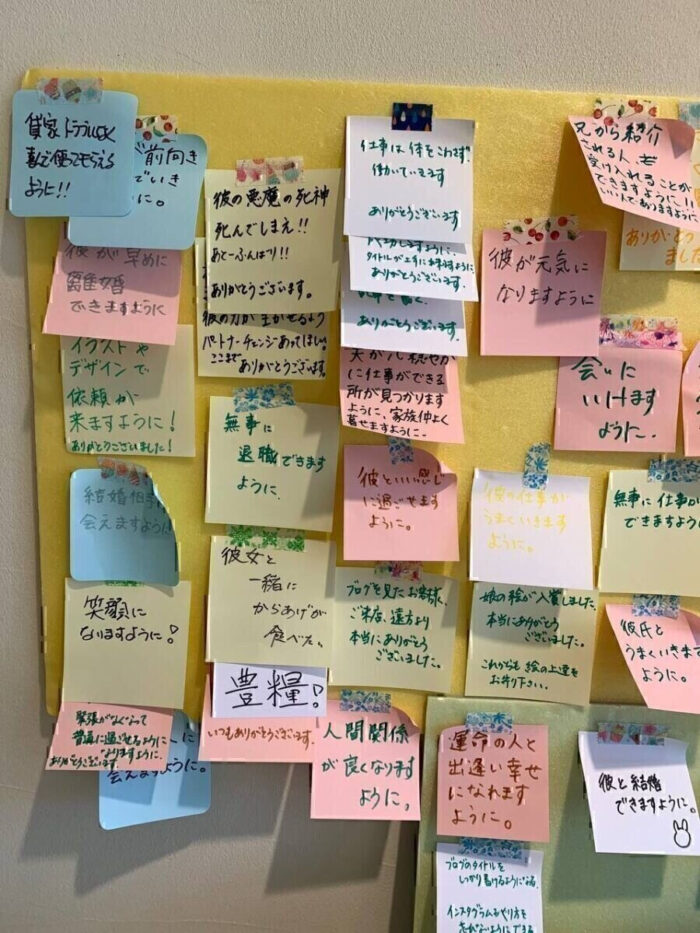 貸家トラブルなく
喜んで使ってもらえる
ように!!
前向き
でいき
に。
彼が早めに
離婚
できますように
イラストや
デザインで
依頼が
来ますように!
ありがとうございました!
結婚相手に
会えますように
笑顔に
ないますように!
緊張がなくなって
普通に過ごせるように
なりますように。
ありがとうございます。
に
会えますように。
彼の悪魔の死神
死んでしまえ!!
あとーふんばり!!
ありがとうございます。
彼の力が生かせるよう
パートナーチェンジあってほしい。
ここまで
ありがとうございます。
無事に
退職できます
ように。
彼女と
一緒に
からあげが
食べたい
豊糧!
いつもありがとうございます。
仕事は体をこわさず
働いています
ありがとうございます
成功しますように
タイトルが上手に出ますように
ありがとうございます。
記事を書く、
ありがとうございます。
夫が心穏やか
に仕事ができる
所が見つかります
ように、家族仲よく
暮せますように。
彼といい感じ
に過ごせます
ように。
ブログを見たお客様、
ご来店、遠方より
本当にありがとう
ございました。
人間関係
が良くなります
ように。
兄から紹介
される人を
受け入れることが
できますように!!
いい人でありますように
ありがとう
ました
彼が元気に
なりますように
会いに
いけます
ように。
彼の仕事が
うまくいきます
ように。
無事に仕事が
できますように
娘の絵が入賞しました。
本当にありがとう
ございました。
これからも絵の上達を
お祈り下さい。
彼氏と
うまくいきます
ように。
運命の人と
出逢い幸せ
になれます
ように。
彼と結婚
できますように。
ブログのタイトルを
しっかり書けるようになる。
インスタグラムのやり方を
忘れないようにできる